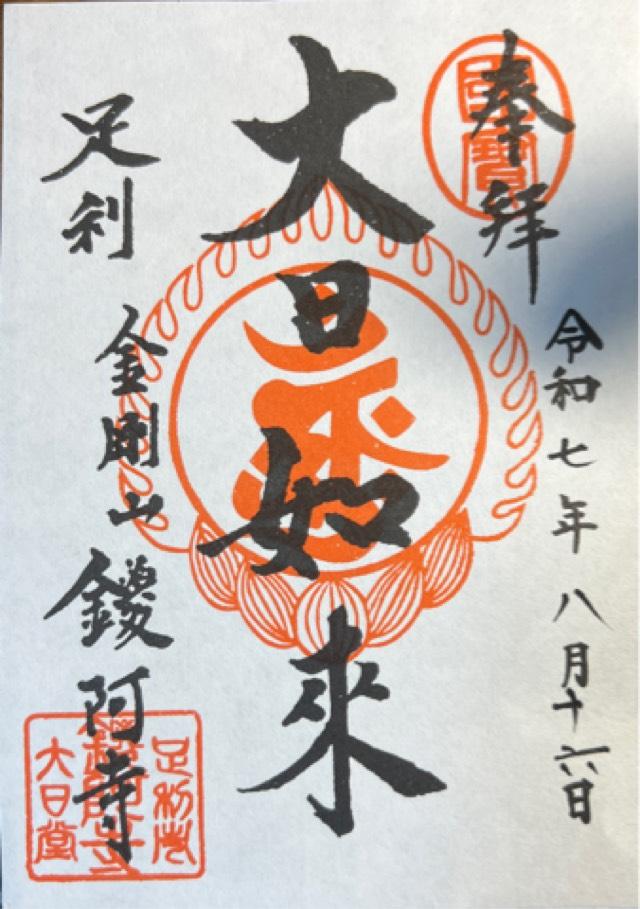 奉拜
令和七年八月十六日
大日如來
足利
金剛山
鑁阿寺
國寶
足利市
鑁阿寺
大日堂